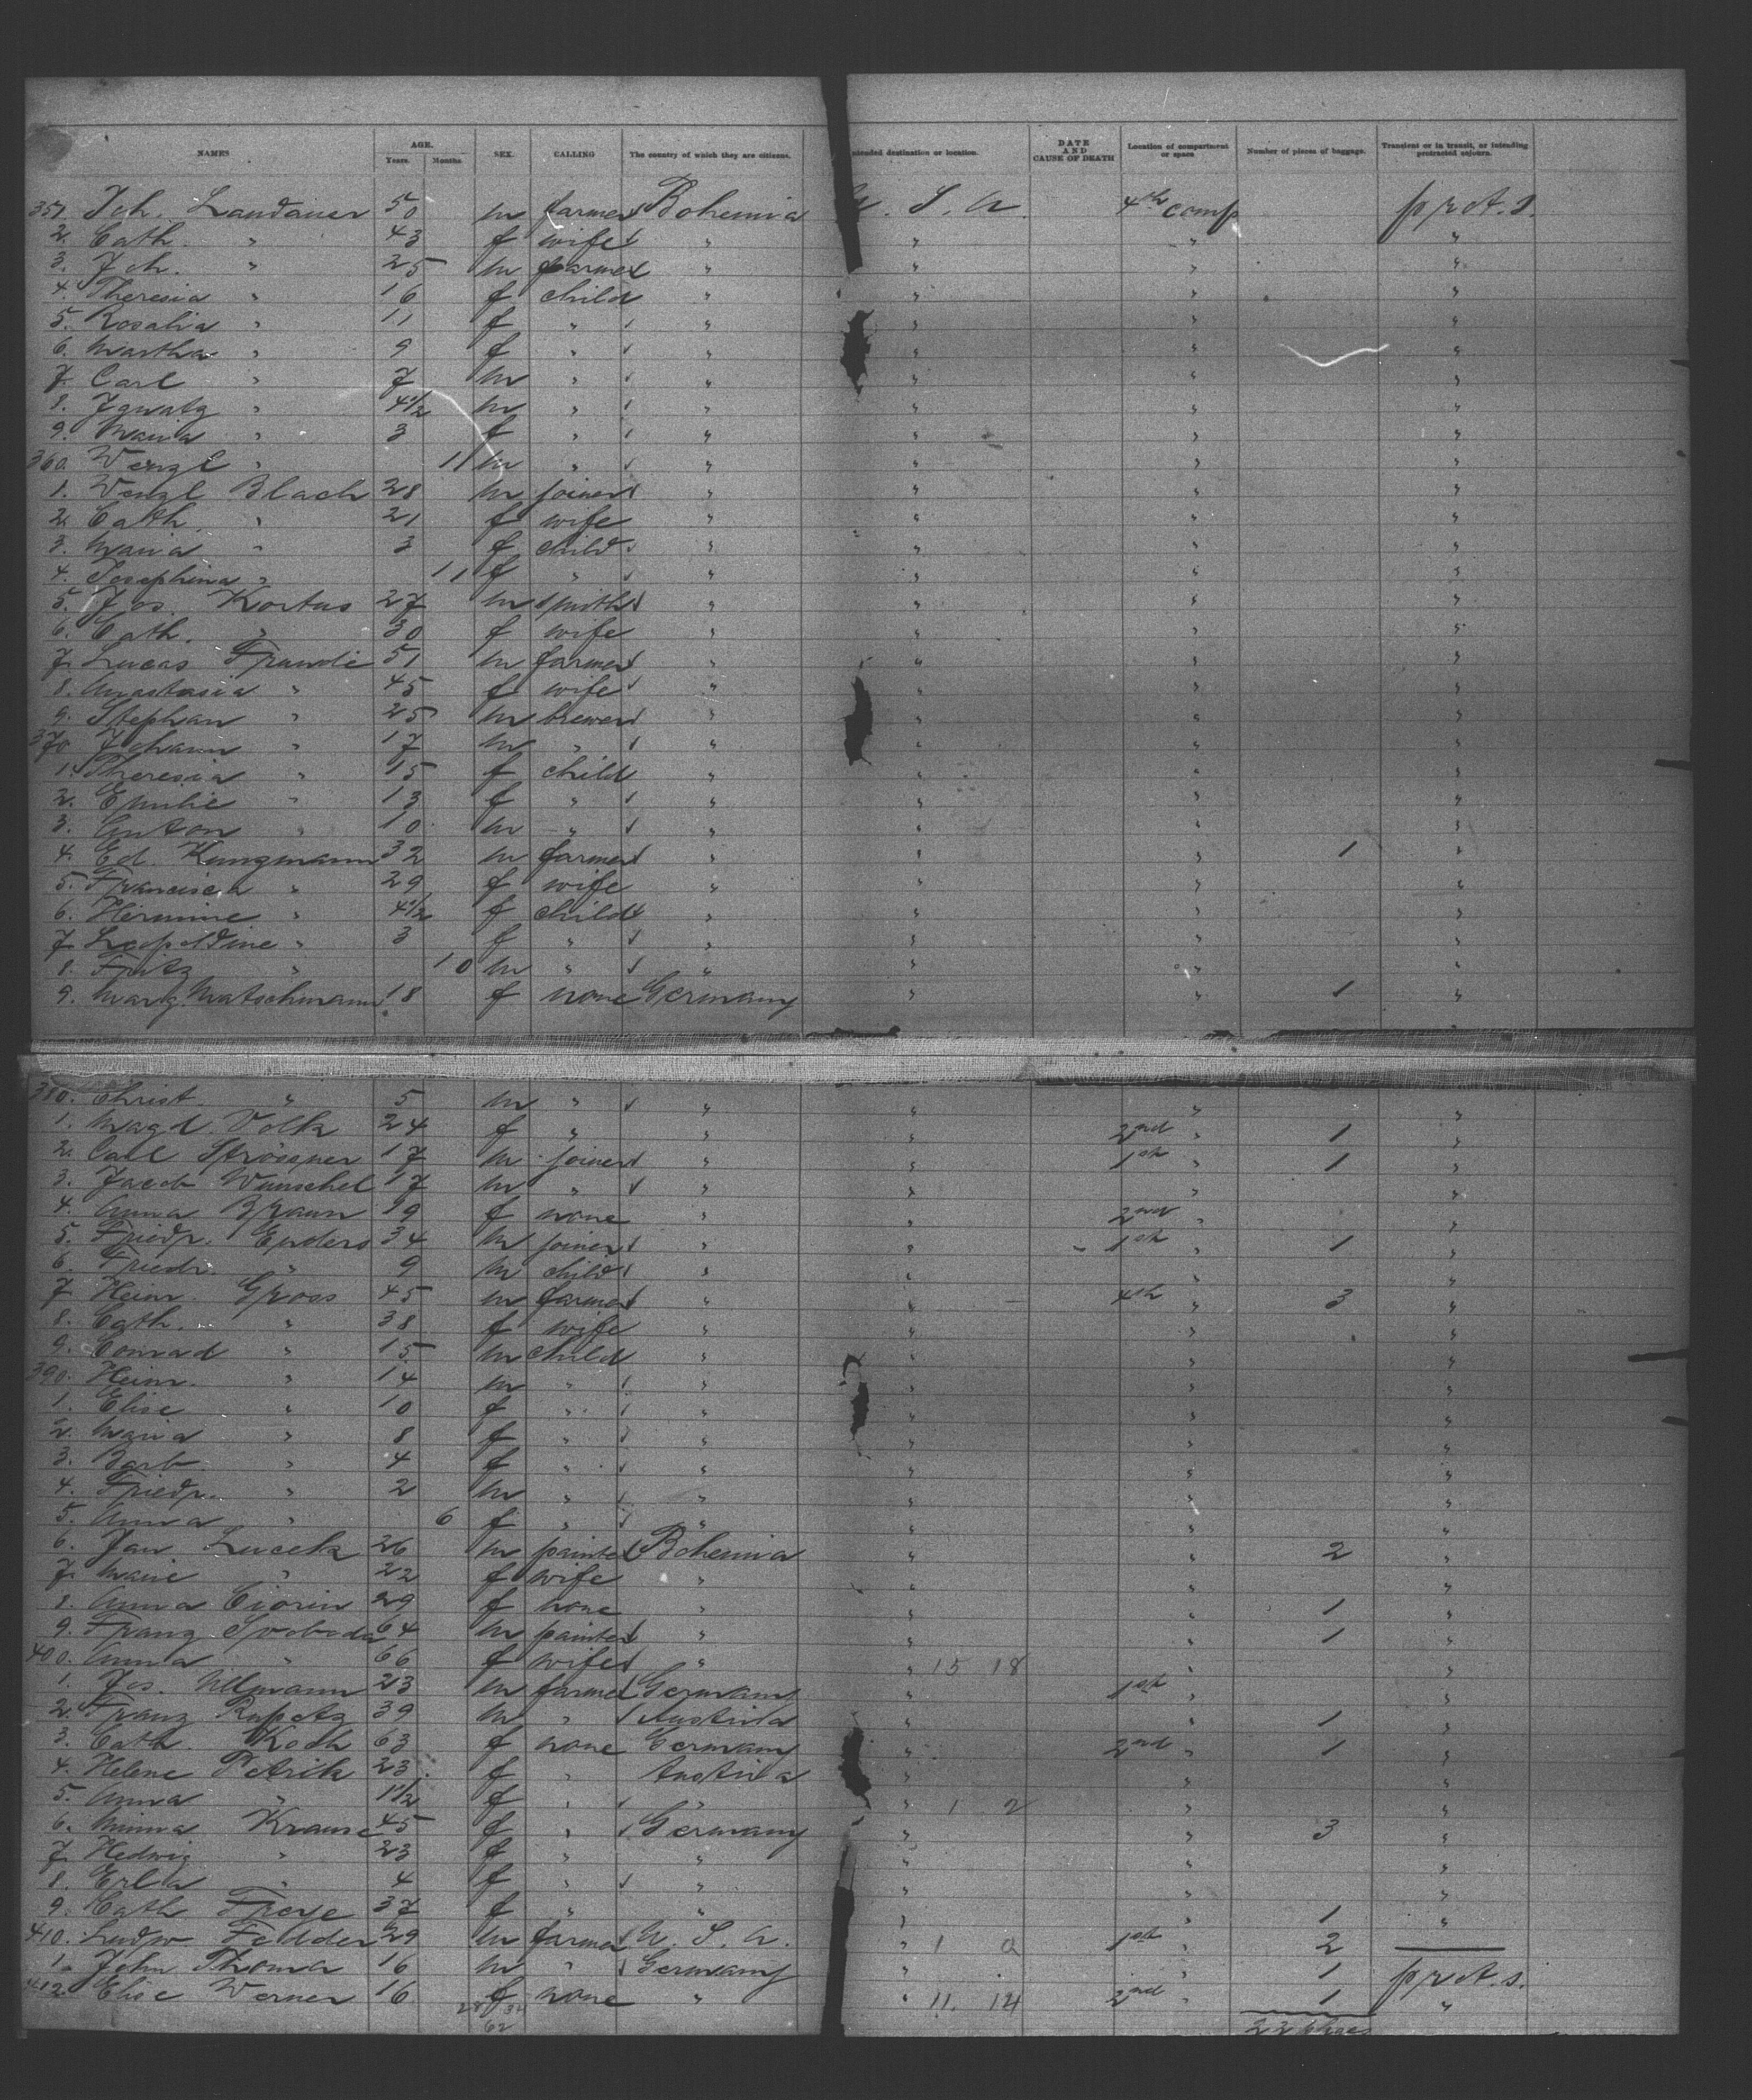 NAMES AGE. Years. Months SEX. CALLING The country of which they are citizens. ntended destination or location. DATE AND CAUSE OF DEATH Location of compartment or space Number of pieces of baggage. Transient or in transit, or intending protracted sojourn.
351. Joh. Landauer 50 m farmer Bohemia U. S. A. 4th comp prot. s.
2. Cath. " 43 f wife " " " "
3. Joh. " 25 m farmer " " " "
4. Theresia " 16 f child " " " "
5. Rosalia " 11 f " " " " "
6. Martha " 9 f " " " " "
7. Carl " 7 m " " " " "
8. Ignatz " 4 1/2 m " " " " "
9. Maria " 3 f " " " " "
360. Wenzl " 11 m " " " " "
1. Wenzl Blach 28 m joiner " " " "
2. Cath. " 21 f wife " " " "
3. Maria " 3 f child " " " "
4. Josephina " 11 f " " " " "
5. Jos. Kortus 27 m smith " " " "
6. Cath. " 30 f wife " " " "
7. Lucas 51 m farmer " " " "
8. Anastasia " 45 f wife " " " "
9. Stephan " 25 m brewer " " " "
370. Johann " 17 m " " " " "
1. Theresia " 15 f child " " " "
2. Emilie " 13 f " " " " "
3. Anton " 10 m " " " " "
4. Ed. Kungmann 32 m farmer " " " 1 "
5. Francisca " 29 f wife " " " "
6. Hermine " 4 1/2 f child " " " "
7. Leopoldine " 3 f " " " " "
8. Fritz " 10 m " " " " "
9. Marg. Matschmann 18 f none Germany " " 1 "
380. Christ. " 5 m " " " " "
1. Magd. Volk 24 f " " " 2nd " 1 "
2. Carl Strössner 17 m joiner " " 1st " 1 "
3. Jacob Wunschel 17 m " " " " "
4. Anna Braun 19 f none " " 2nd " "
5. Friedr. Enders 34 m joiner " " 1st " 1 "
6. Friedr. " 9 m child " " " "
7. Heinr. Gross 45 m farmer " " 4th " 3 "
8. Cath. " 38 f wife " " " "
9. Conrad " 15 m child " " " "
390. Heinr. " 14 m " " " " "
1. Elise " 10 f " " " " "
2. Maria " 8 f " " " " "
3. Barb " 4 f " " " " "
4. Friedr. " 2 m " " " " "
5. Anna " 6 f " " " " "
6. Jan Lucek 26 m painter Bohemia " " 2 "
7. Marie " 22 f wife " " " "
8. Anna 29 f none " " " 1 "
9. Franz Svoboda 64 m painter " " " 1 "
400. Anna " 66 f wife " " 15 18 " "
1. Jos. Ullmann 23 m farmer Germany " 1st " "
2. Franz 39 m " Austria " " 1 "
3. Cath. Koch 63 f none Germany " 2nd " 1 "
4. Helene Petrik 23 f " Austria " " "
5. Anna " 1 1/2 f " " " 1 2 " "
6. Minna Krause 45 f " Germany " " 3 "
7. Hedwig " 23 f " " " " "
8. Erla " 4 f " " " " "
9. Cath. Freye 37 f " " " " 1 "
410. Ludw. Fedder 29 m farmer U. S. A. " 1 0 1st " 2
1. John Thoma 16 m " Germany " " 1 prot. s.
412. Elise Werner 16 f none " " 11. 14 2nd " 1 "
28 32
62